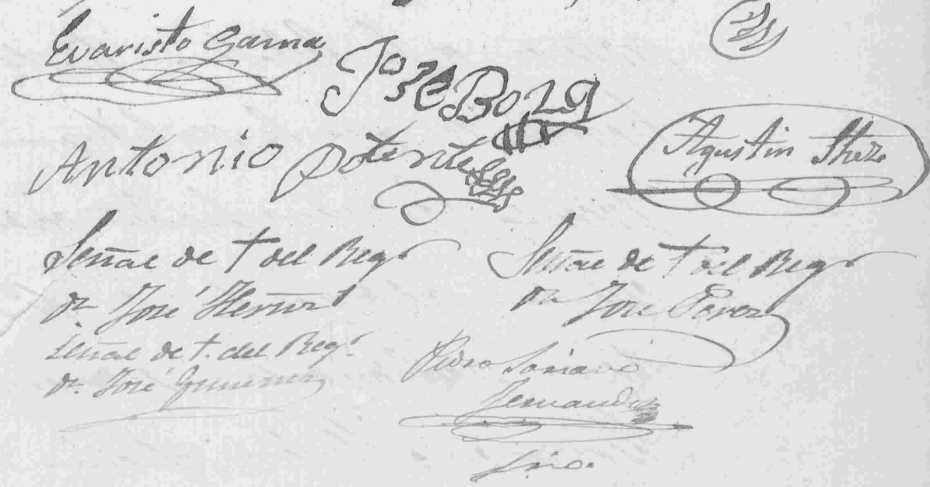 Evaristo Gama
José Boza
Antonio Potente
Agustin
Señal de † del Regr
Dn José
Señal de † del Regr
Dn José Perez
Señal de †. del Regr
Dn José Gimenez
Pedro Soriano
Fernandez
Srio.